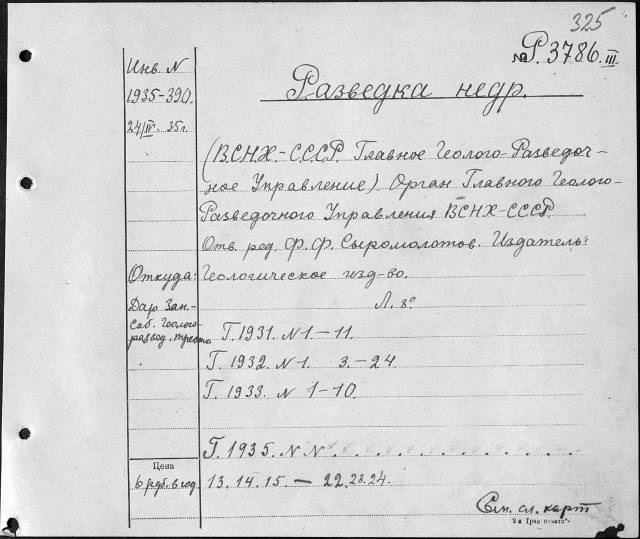 325
№ Р. 3786. III.
Инв. N
1935-390.
24/IV. 35 г.
Разведка недр.
(ВСНХ.-СССР. Главное Геолого-Разведоч-
ное Управление). Орган Главного Геолого-
Разведочного Управления ВСНХ-СССР.
Отв. ред. Ф. Ф. Сыромолотов. Издатель:
Откуда:
Геологическое изд-во.
Дар Зап-
Саб. Геолого-
развед. треста
Л. 8°
Г. 1931. N 1.-11.
Г. 1932. N 1. 3.-24.
Г. 1933. N 1-10.
Г. 1935. N N
Цена
6 руб. в год.
13. 14. 15. - 22. 23. 24.
См. сл. карт